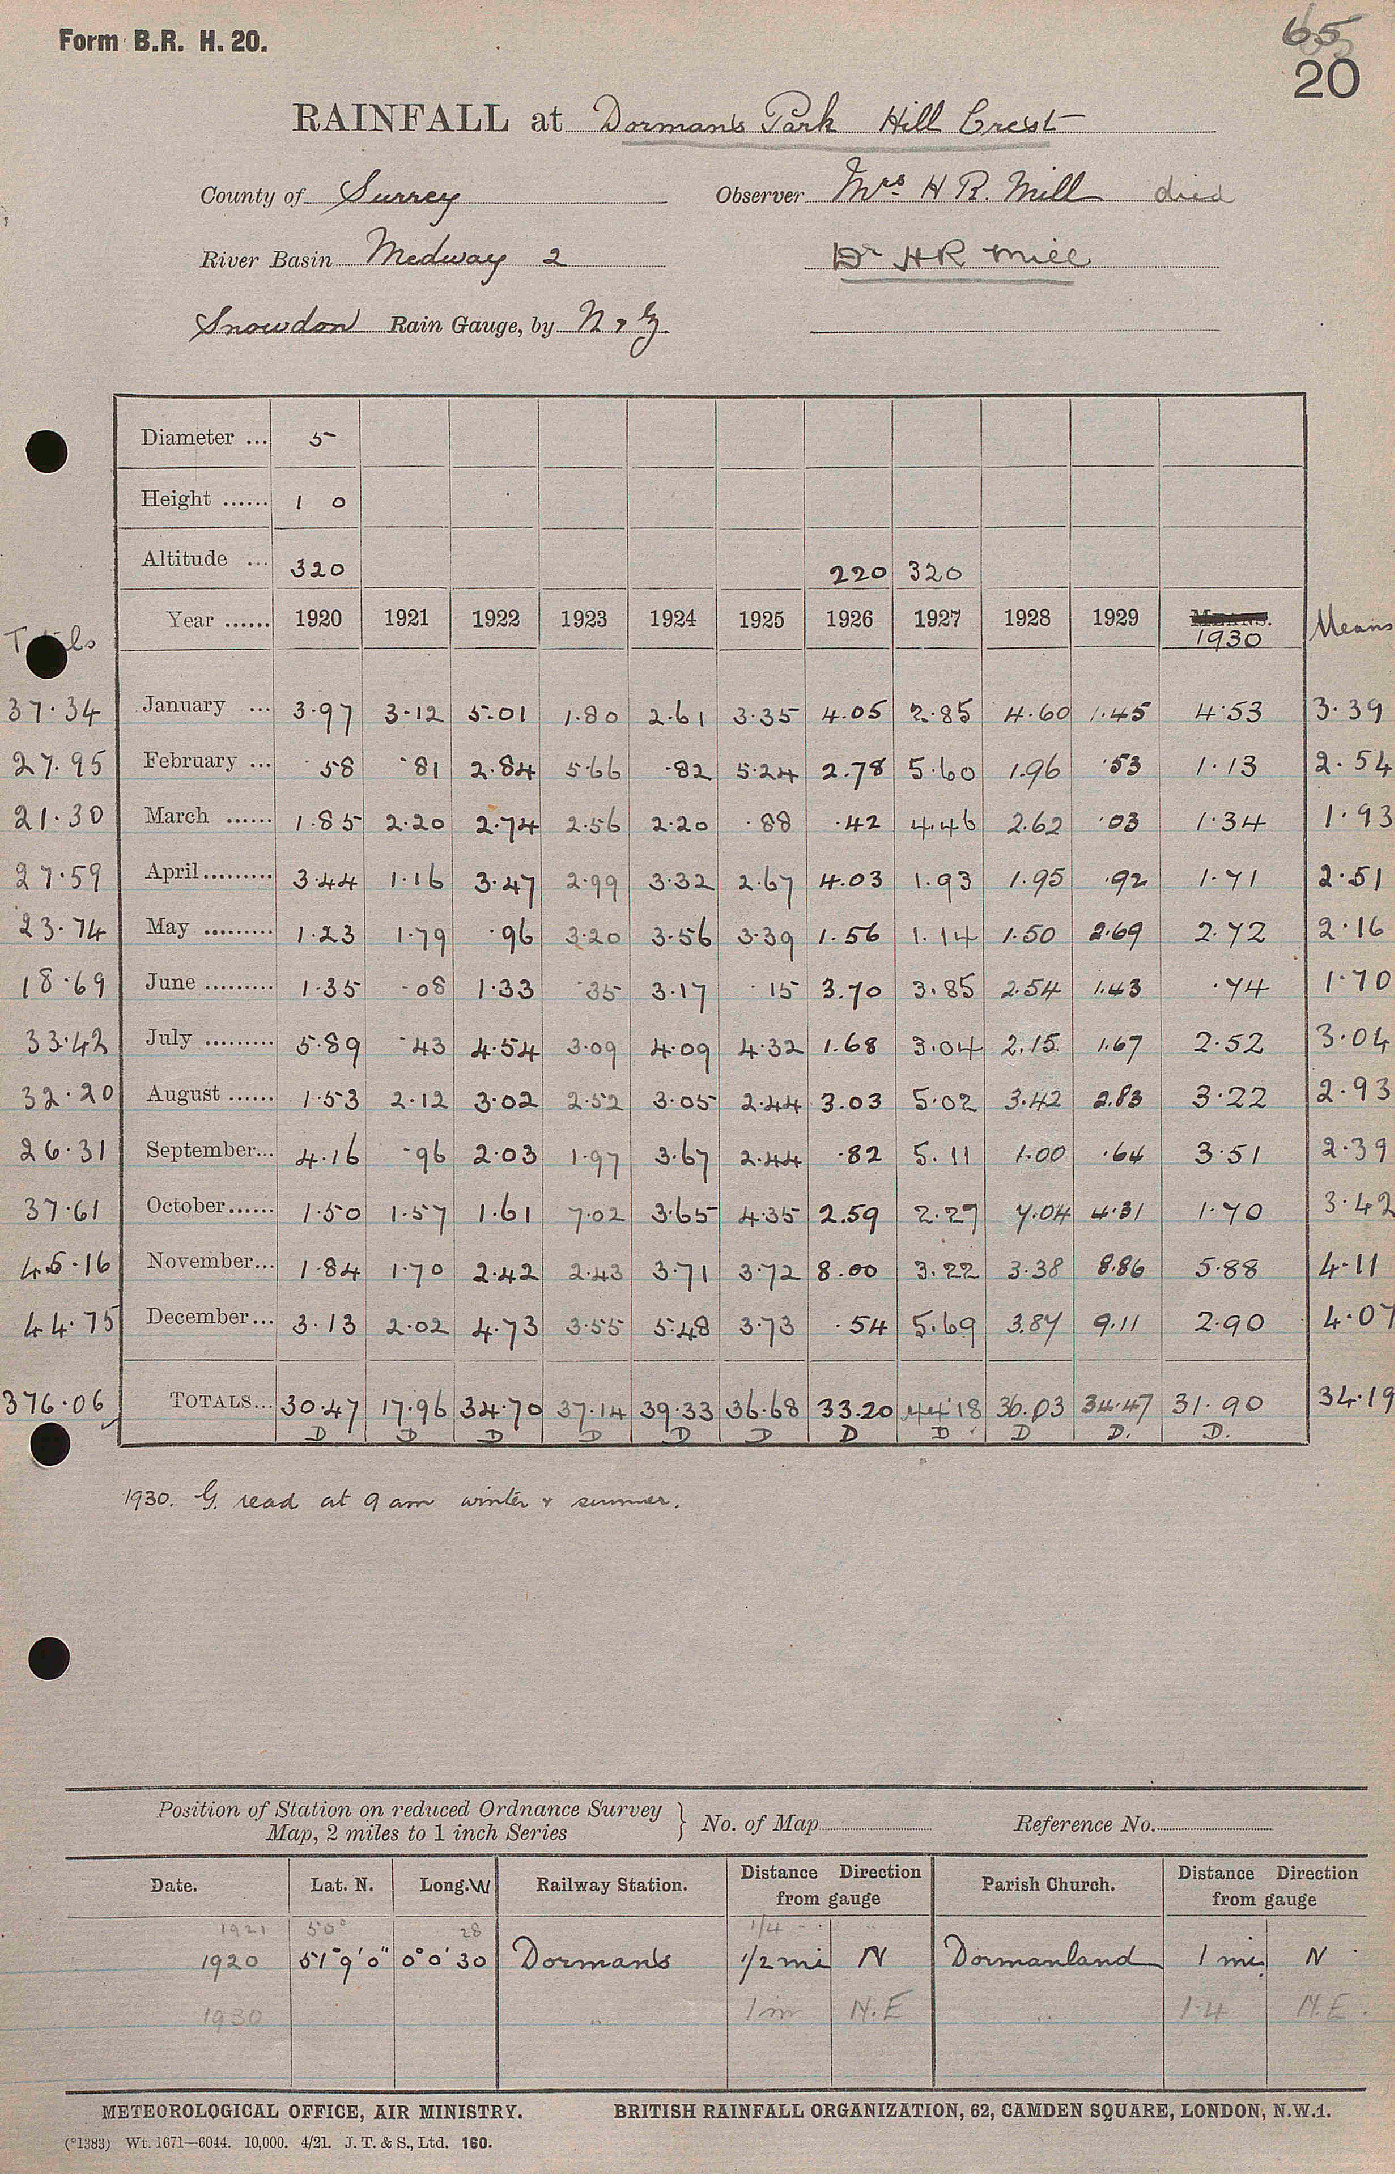 Form B.R. H. 20.
65
20
RAINFALL at Dormans Park Hill Crest
County of Surrey Observer Mrs H R. Mill died
River Basin Medway 2 Dr H R Mill
Snowdon Rain Gauge, by N & Z
Diameter ... 5
Height ...... 1 0
Altitude ... 320 220 320
Totals Year ...... 1920 1921 1922 1923 1924 1925 1926 1927 1928 1929 MEANS. 1930 Means
37.34 January ... 3.97 3.12 5.01 1.80 2.61 3.35 4.05 2.85 4.60 1.45 4.53 3.39
27.95 February ... .58 .81 2.84 5.66 .82 5.24 2.78 5.60 1.96 .53 1.13 2.54
21.30 March ...... 1.85 2.20 2.74 2.56 2.20 .88 .42 4.46 2.62 .03 1.34 1.93
27.59 April......... 3.44 1.16 3.47 2.99 3.32 2.67 4.03 1.93 1.95 .92 1.71 2.51
23.74 May ......... 1.23 1.79 .96 3.20 3.56 3.39 1.56 1.14 1.50 2.69 2.72 2.16
18.69 June ......... 1.35 .08 1.33 .35 3.17 .15 3.70 3.85 2.54 1.43 .74 1.70
33.42 July ......... 5.89 .43 4.54 3.09 4.09 4.32 1.68 3.04 2.15 1.67 2.52 3.04
32.20 August ...... 1.53 2.12 3.02 2.52 3.05 2.44 3.03 5.02 3.42 2.83 3.22 2.93
26.31 September... 4.16 .96 2.03 1.97 3.67 2.44 .82 5.11 1.00 .64 3.51 2.39
37.61 October...... 1.50 1.57 1.61 7.02 3.65 4.35 2.59 2.27 7.04 4.31 1.70 3.42
45.16 November... 1.84 1.70 2.42 2.43 3.71 3.72 8.00 3.22 3.38 8.86 5.88 4.11
44.75 December... 3.13 2.02 4.73 3.55 5.48 3.73 .54 5.69 3.87 9.11 2.90 4.07
376.06 TOTALS... 30.47 17.96 34.70 37.14 39.33 36.68 33.20 44.18 36.03 34.47 31.90 34.19
D D D D D D D D D D. D.
1930. G. read at 9 am winter & summer.
Position of Station on reduced Ordnance Survey Map, 2 miles to 1 inch Series } No. of Map Reference No.
Date. Lat. N. Long. W Railway Station. Distance Direction from gauge Parish Church. Distance Direction from gauge
1921 50° 28 1/4
1920 51° 9' 0" 0° 0' 30 Dormans 1/2 mi N Dormanland 1 mi. N
1930 " 1 m N.E " 1.4 N.E.
METEOROLOGICAL OFFICE, AIR MINISTRY. BRITISH RAINFALL ORGANIZATION, 62, CAMDEN SQUARE, LONDON, N.W.1.
(*1383) Wt. 1671—6044. 10,000. 4/21. J. T. & S., Ltd. 160.